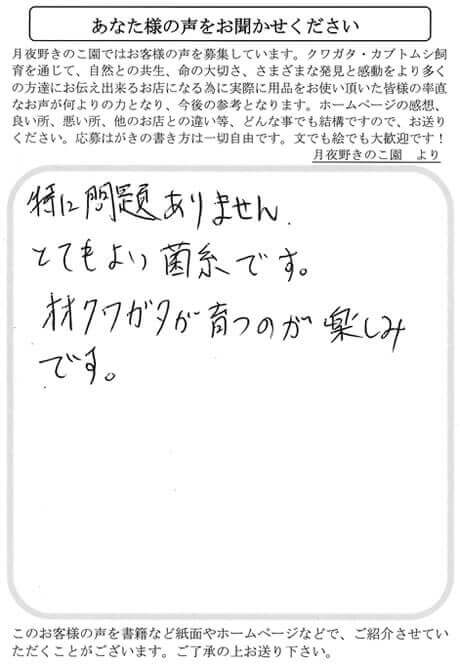 あなた様の声をお聞かせください
月夜野きのこ園ではお客様の声を募集しています。クワガタ・カブトムシ飼
育を通じて、自然との共生、命の大切さ、さまざまな発見と感動をより多く
の方達にお伝え出来るお店になる為に実際に用品をお使い頂いた皆様の率直
なお声が何よりの力となり、今後の参考となります。ホームページの感想、
良い所、悪い所、他のお店との違い等、どんな事でも結構ですので、お送り
ください。応募はがきの書き方は一切自由です。文でも絵でも大歓迎です！
月夜野きのこ園　より
特に問題ありません.
とてもよい菌糸です。
オオクワガタが育つのが楽しみ
です。
このお客様の声を書籍など紙面やホームページなどで、ご紹介させてい
ただくことがございます。ご了承の上お送り下さい。